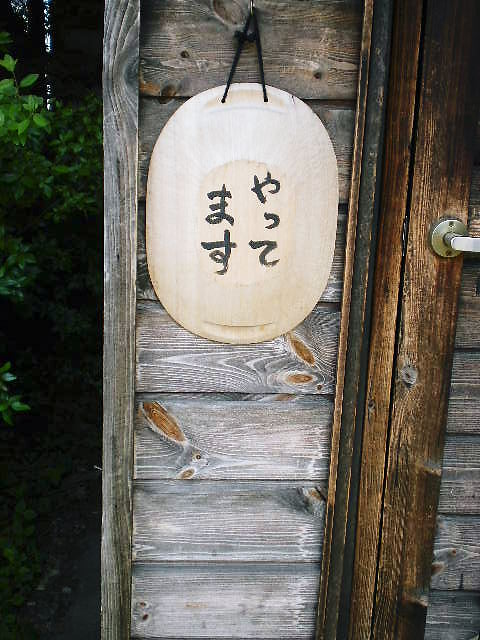 やって
ます